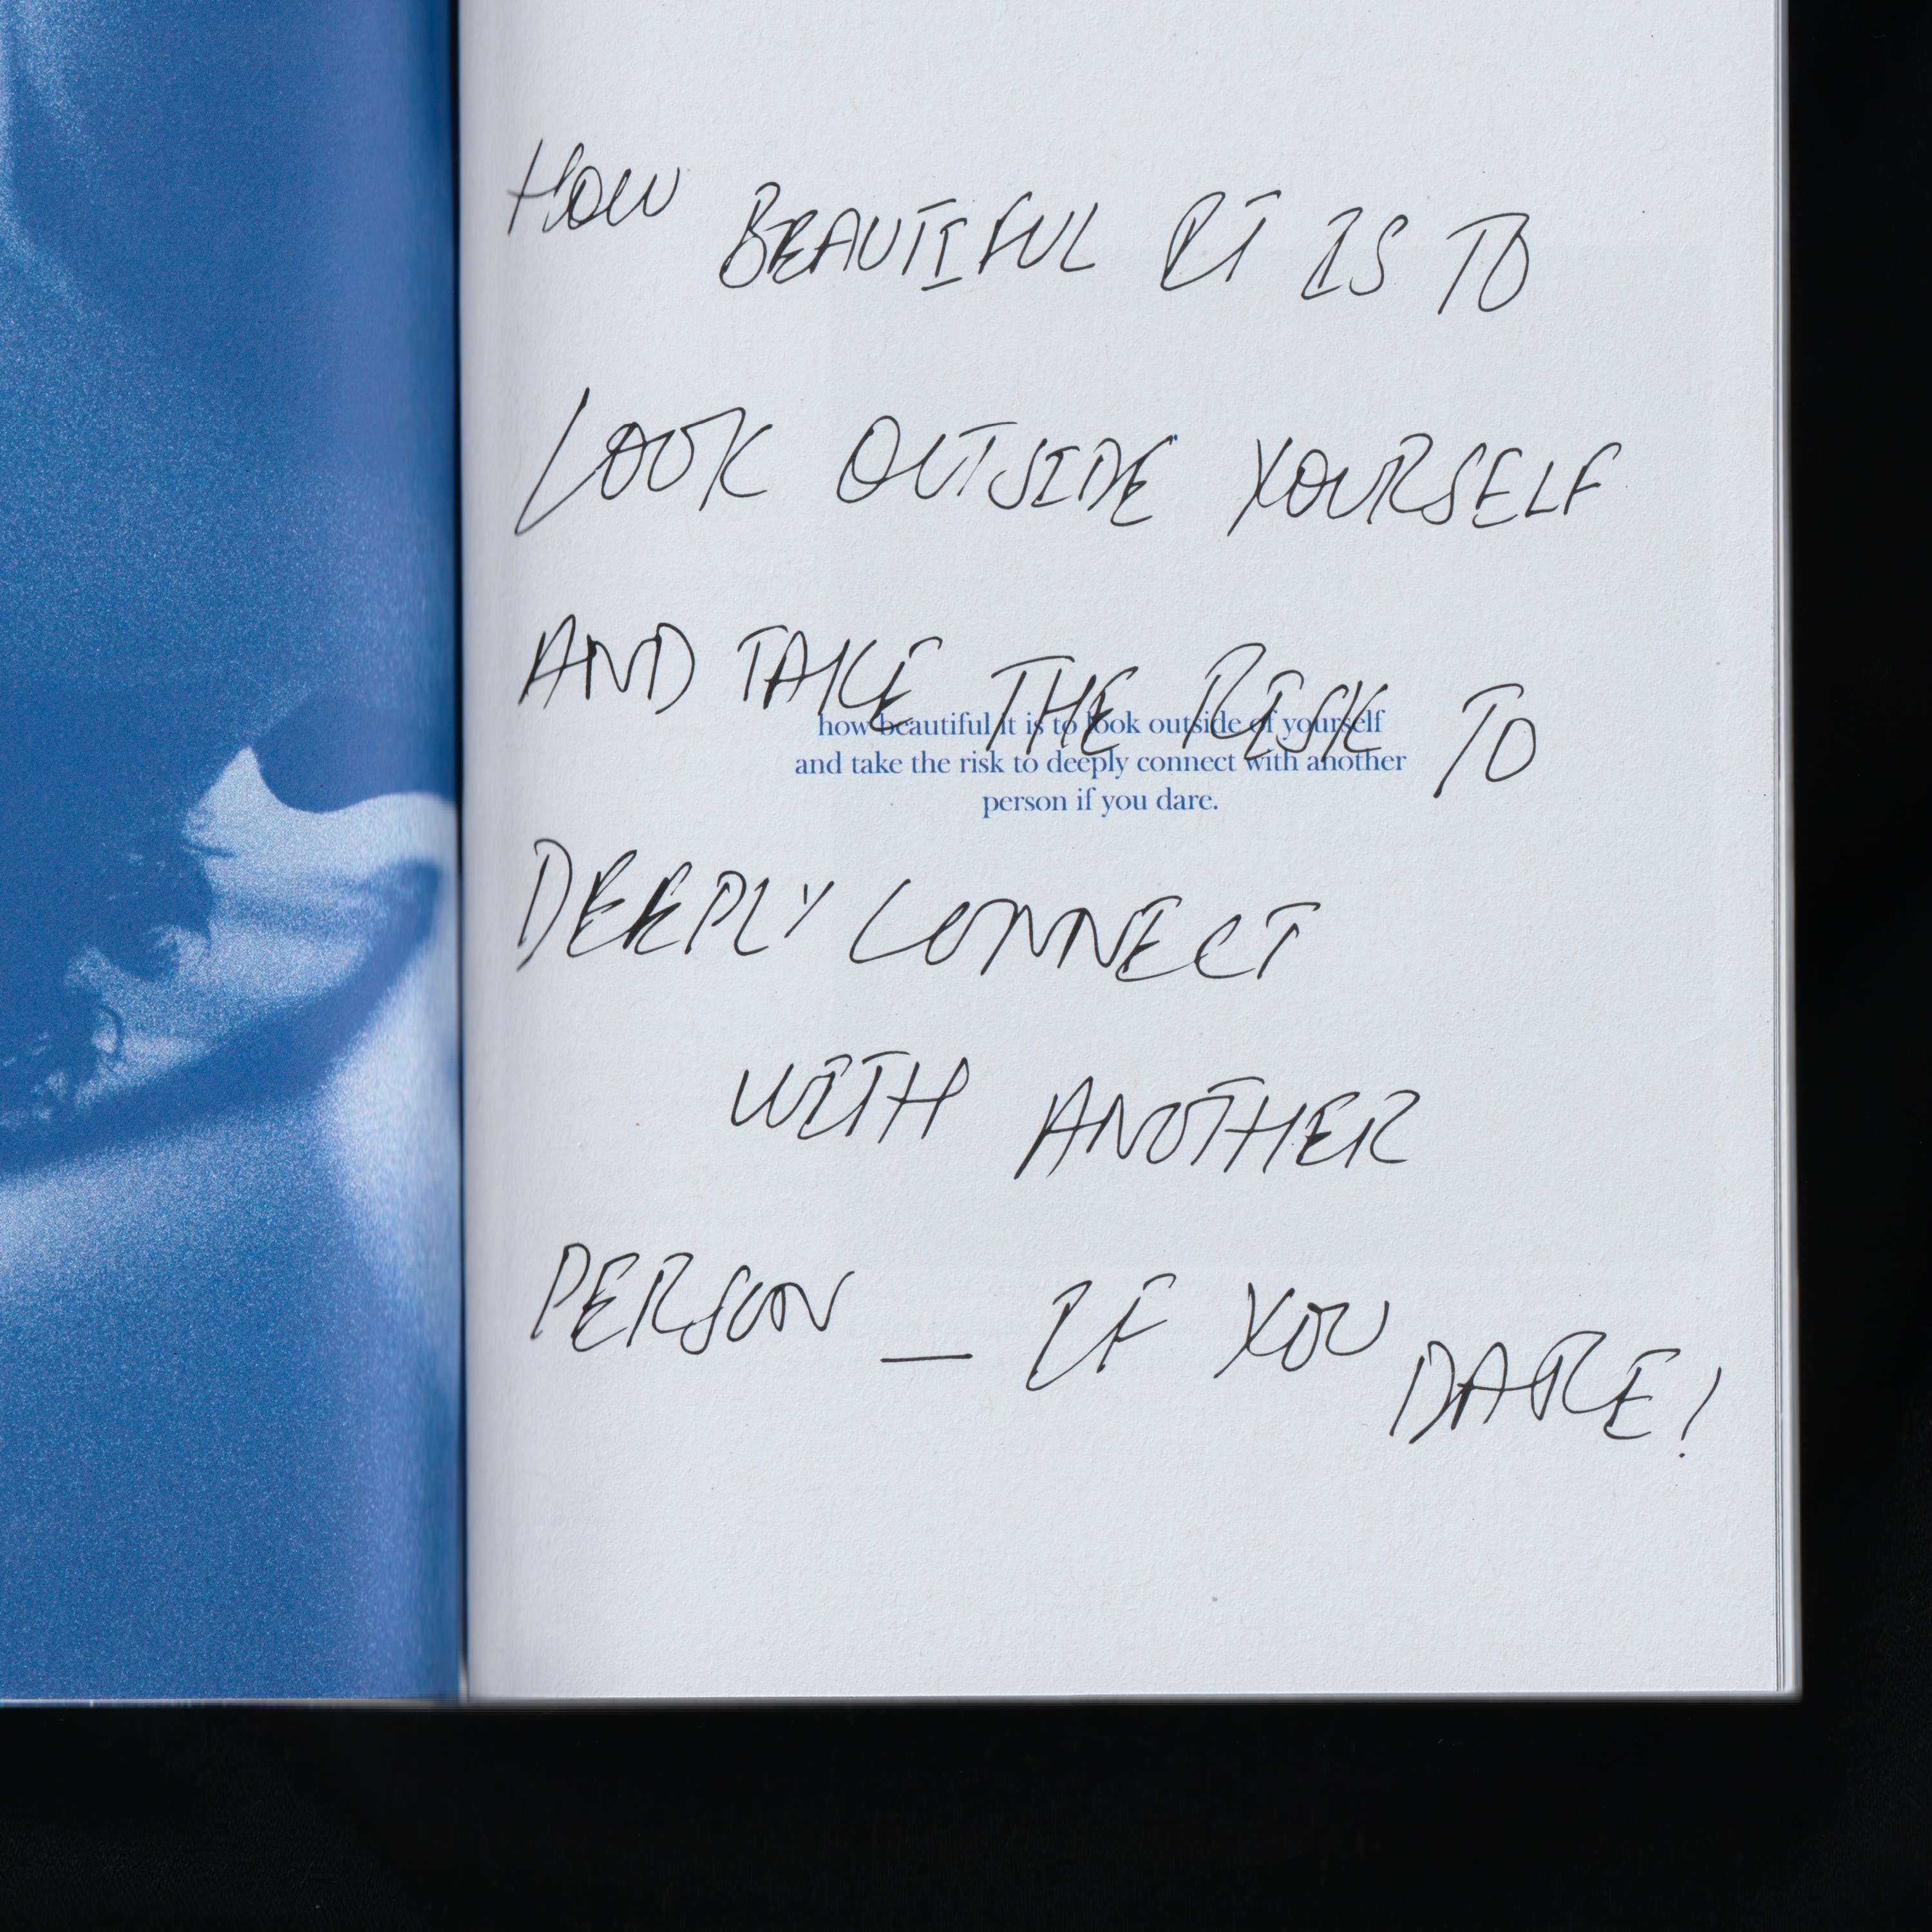 HOW BEAUTIFUL IT IS TO
LOOK OUTSIDE YOURSELF
AND TAKE THE RISK TO
how beautiful it is to look outside of yourself
and take the risk to deeply connect with another
person if you dare.
DEEPLY CONNECT
WITH ANOTHER
PERSON _ IF YOU DARE!